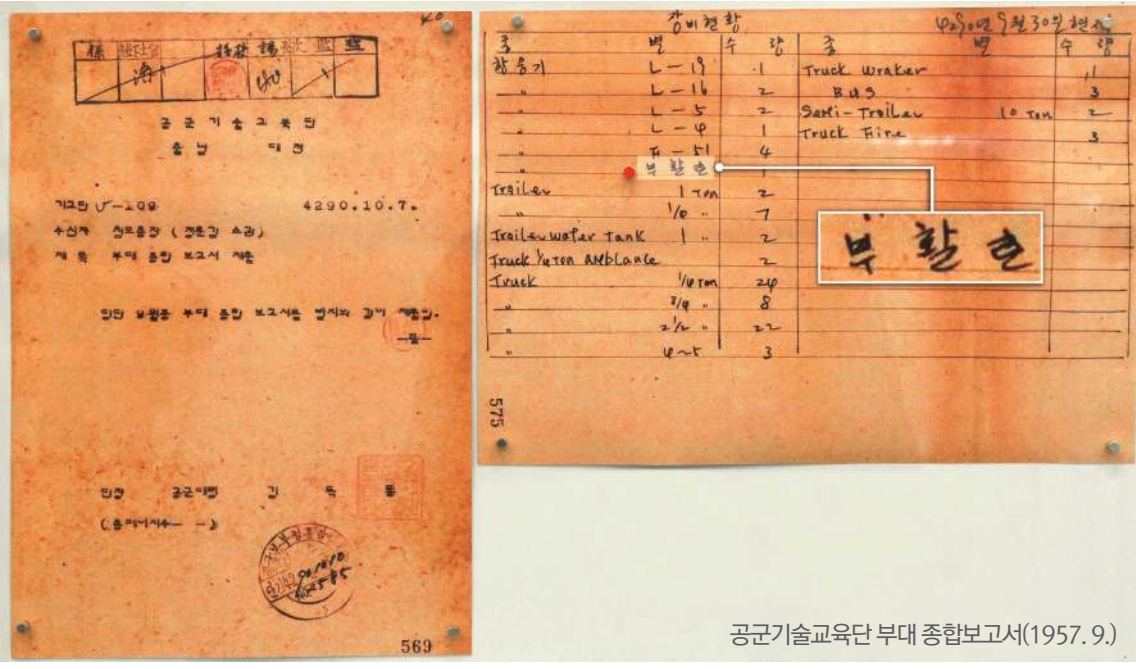 40
係 務 課長 監
공군기술교육단
충남 대전
기교단 V-109 4290.10.7.
수신자 참모총장 (정훈감 소관)
제 목 부대 종합 보고서 제출
당단 9월중 부대 종합 보고서를 별지와 같이 제출함.
—끝—
단장 공군대령 김 득 룡
569
장비현황 4290년 9월 30일 현재
종 별 수 량 종 별 수 량
항공기 L-19 1 Truck Wraker 1
" L-16 2 BUS 3
" L-5 2 Semi-Trailer 10 Ton 2
" L-4 1 Truck Fire 3
" F-51 4
" 부활호 1
Trailer 1 Ton 2
" 1/4 " 7
Trailer water Tank 1 " 2
Truck 1/4 Ton Amblance 2
Truck 1/4 Ton 24
" 3/4 " 8
" 2 1/2 " 22
" 4~5 3
부활호
575
공군기술교육단 부대 종합보고서(1957. 9.)